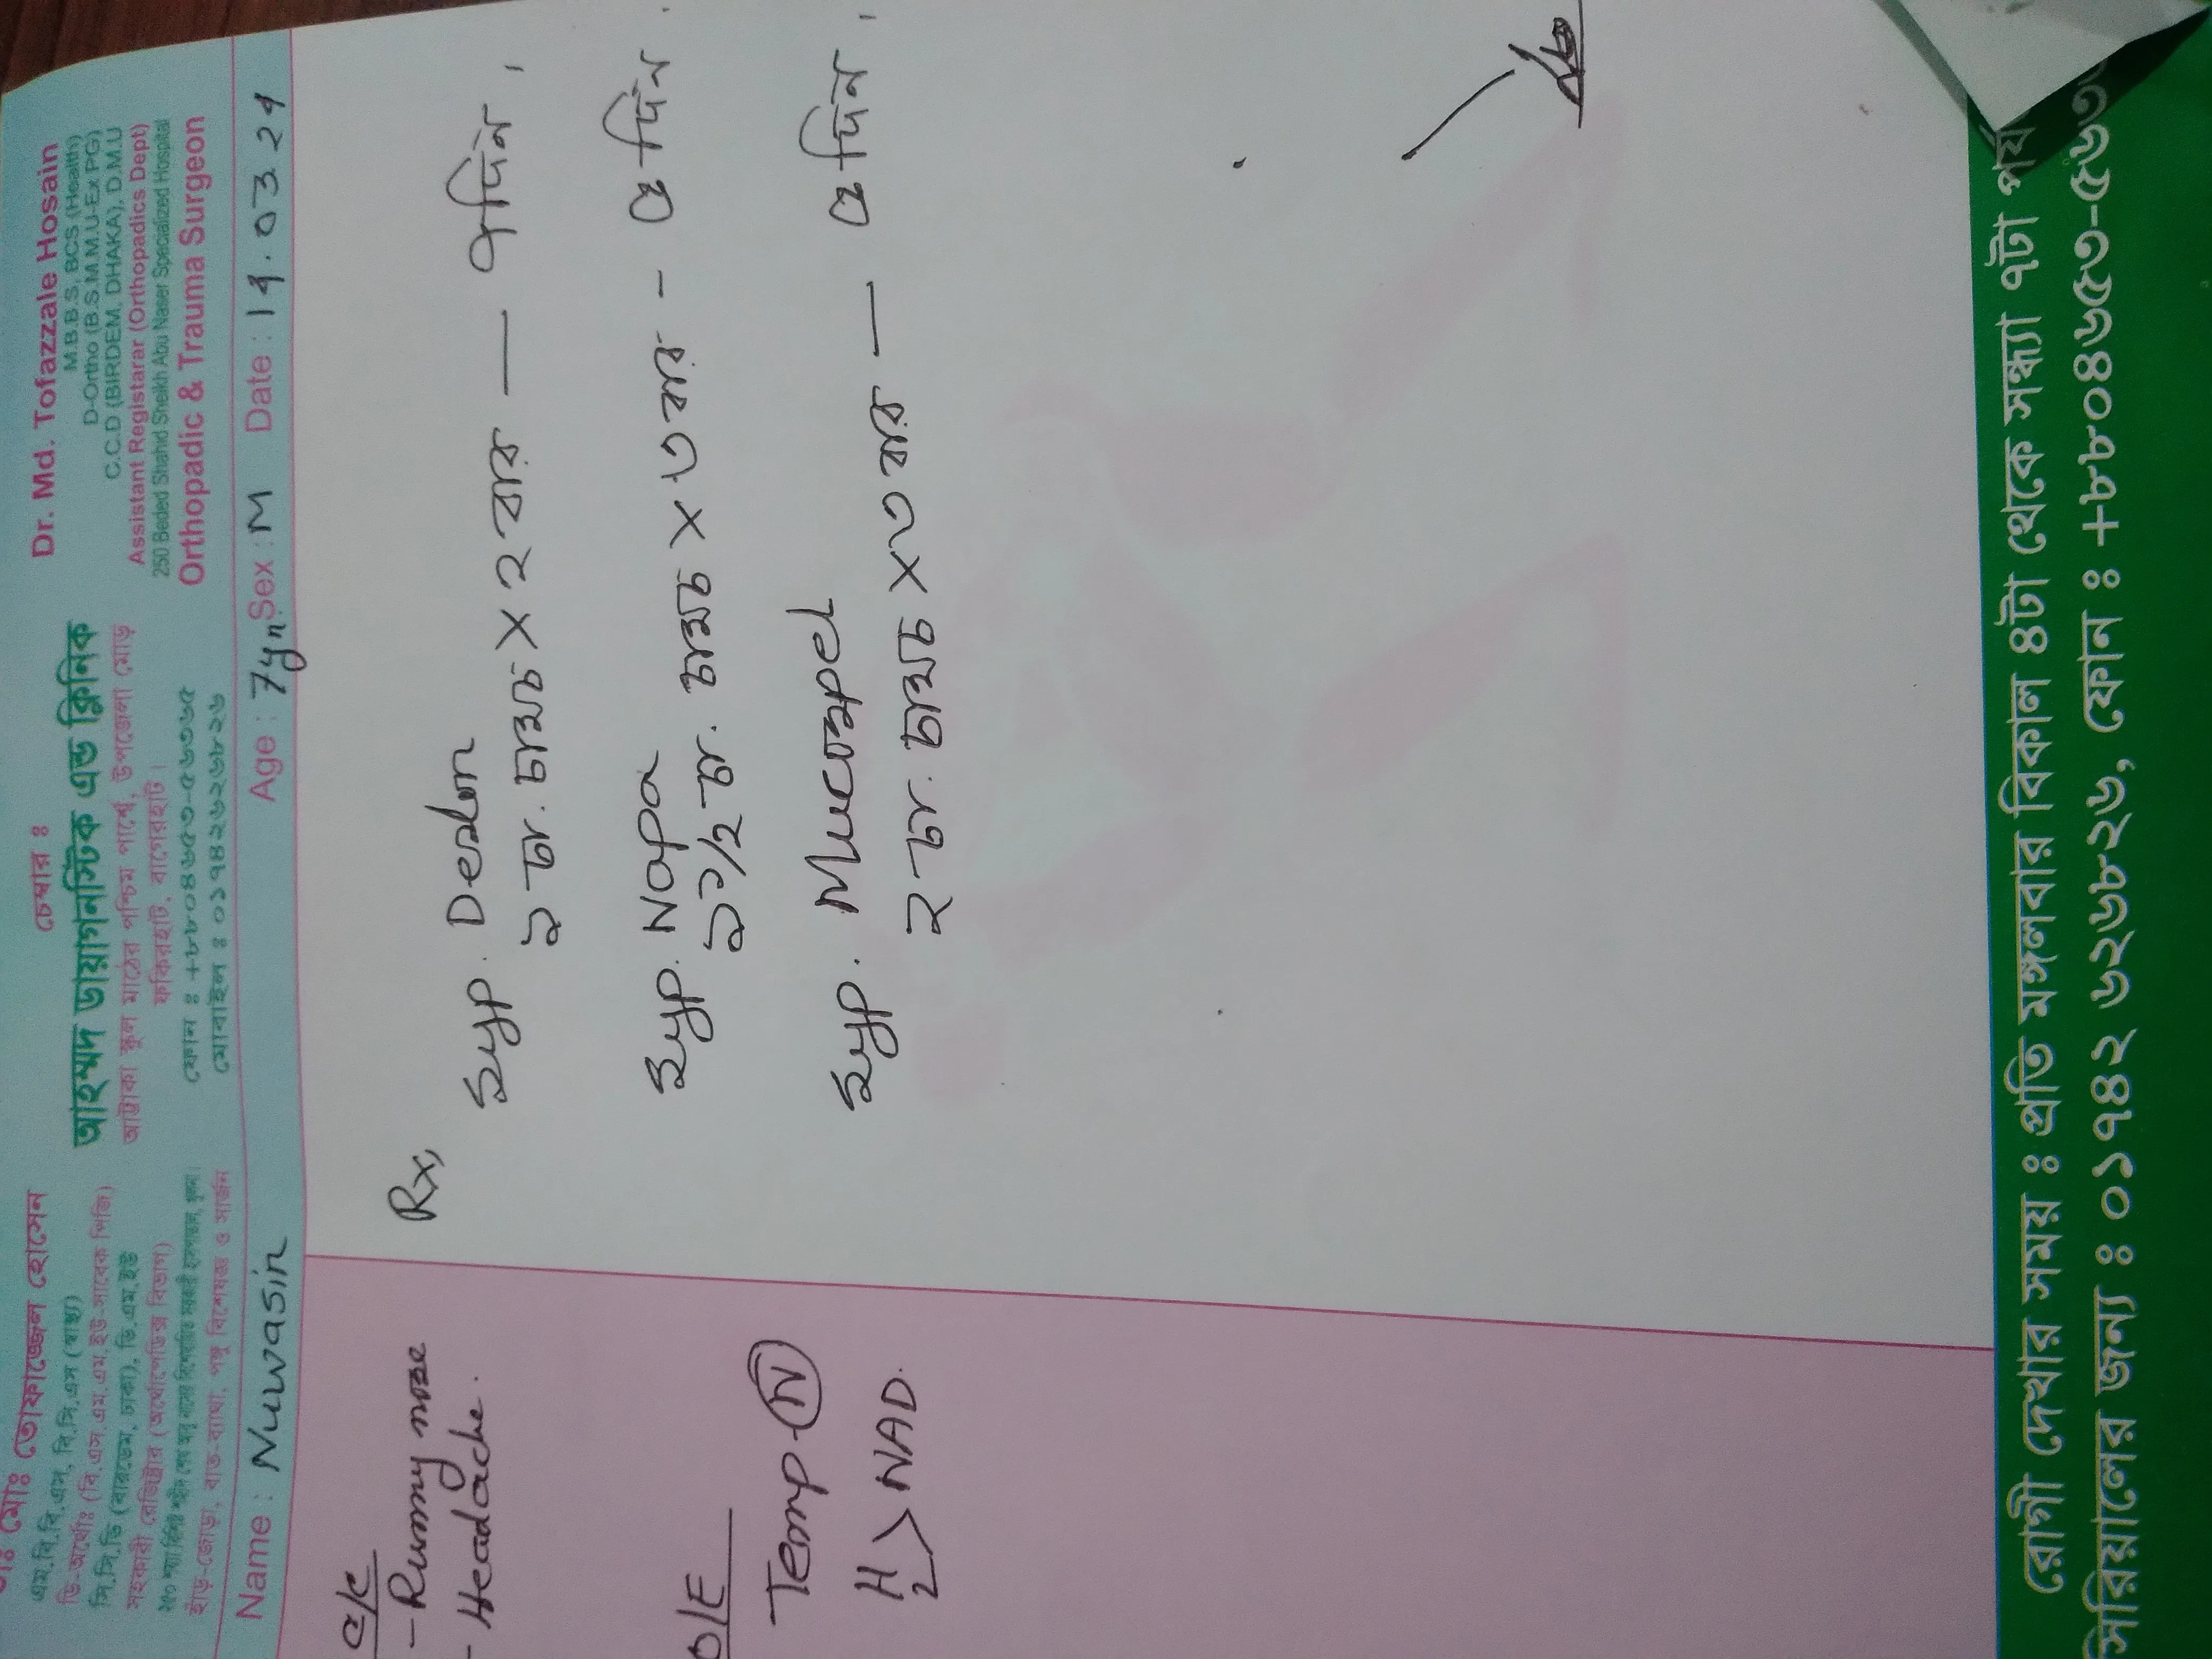 ডাঃ মোঃ তোফাজ্জেল হোসেন
এম.বি.বি.এস, বি.সি.এস (স্বাস্থ্য)
ডি-অর্থোঃ (বি.এস.এম.এম.ইউ-সাবেক পিজি)
সি.সি.ডি (বারডেম, ঢাকা), ডি.এম.ইউ
সহকারী রেজিষ্ট্রার (অর্থোপেডিক্স বিভাগ)
হাড়-জোড়া, বাত-ব্যাথা, পঙ্গু বিশেষজ্ঞ ও সার্জন
চেম্বার ঃ
আহম্মদ ডায়াগনস্টিক এন্ড ক্লিনিক
আট্টাকা স্কুল মাঠের পশ্চিম পার্শ্বে, উপজেলা মোড়
ফকিরহাট, বাগেরহাট।
ফোন ঃ +৮৮০৪৬৫৩-৫৬৩৬৫
মোবাইল ঃ ০১৭৪২৬২৬৮২৬
Dr. Md. Tofazzale Hosain
M.B.B.S, BCS (Health)
D-Ortho (B.S.M.M.U-Ex PG)
C.C.D (BIRDEM, DHAKA), D.M.U
Assistant Registarar (Orthopadics Dept)
250 Beded Shahid Sheikh Abu Naser Specialized Hospital
Orthopadic & Trauma Surgeon
Name : Nuwasin Age : 7yn Sex : M Date : 19.03.24
C/C
- Runny nose
- Headache.
O/E
Temp - N
H
L > NAD.
Rx,
Syp. Deslon
১ চা. চামচ × ২ বার — ৭ দিন।
Syp. Napa
১১/২ চা. চামচ × ৩ বার - ৫ দিন।
Syp. Mucospel
২ চা. চামচ × ৩ বার — ৫ দিন।
রোগী দেখার সময় ঃ প্রতি মঙ্গলবার বিকাল ৪টা থেকে সন্ধ্যা ৭টা
সিরিয়ালের জন্য ঃ ০১৭৪২ ৬২৬৮২৬, ফোন ঃ +৮৮০৪৬৫৩-৫৬৩